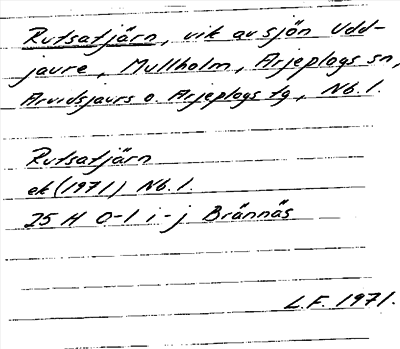 Rutsatjärn, vik av sjön Udd-
jaure, Mullholm, Arjeplogs sn,
Arvidsjaurs o. Arjeplogs tg, Nb. l.
Rutsatjärn
ek (1971) Nb. l.
25 H 0-1 i-j Brännäs
L.F. 1971.